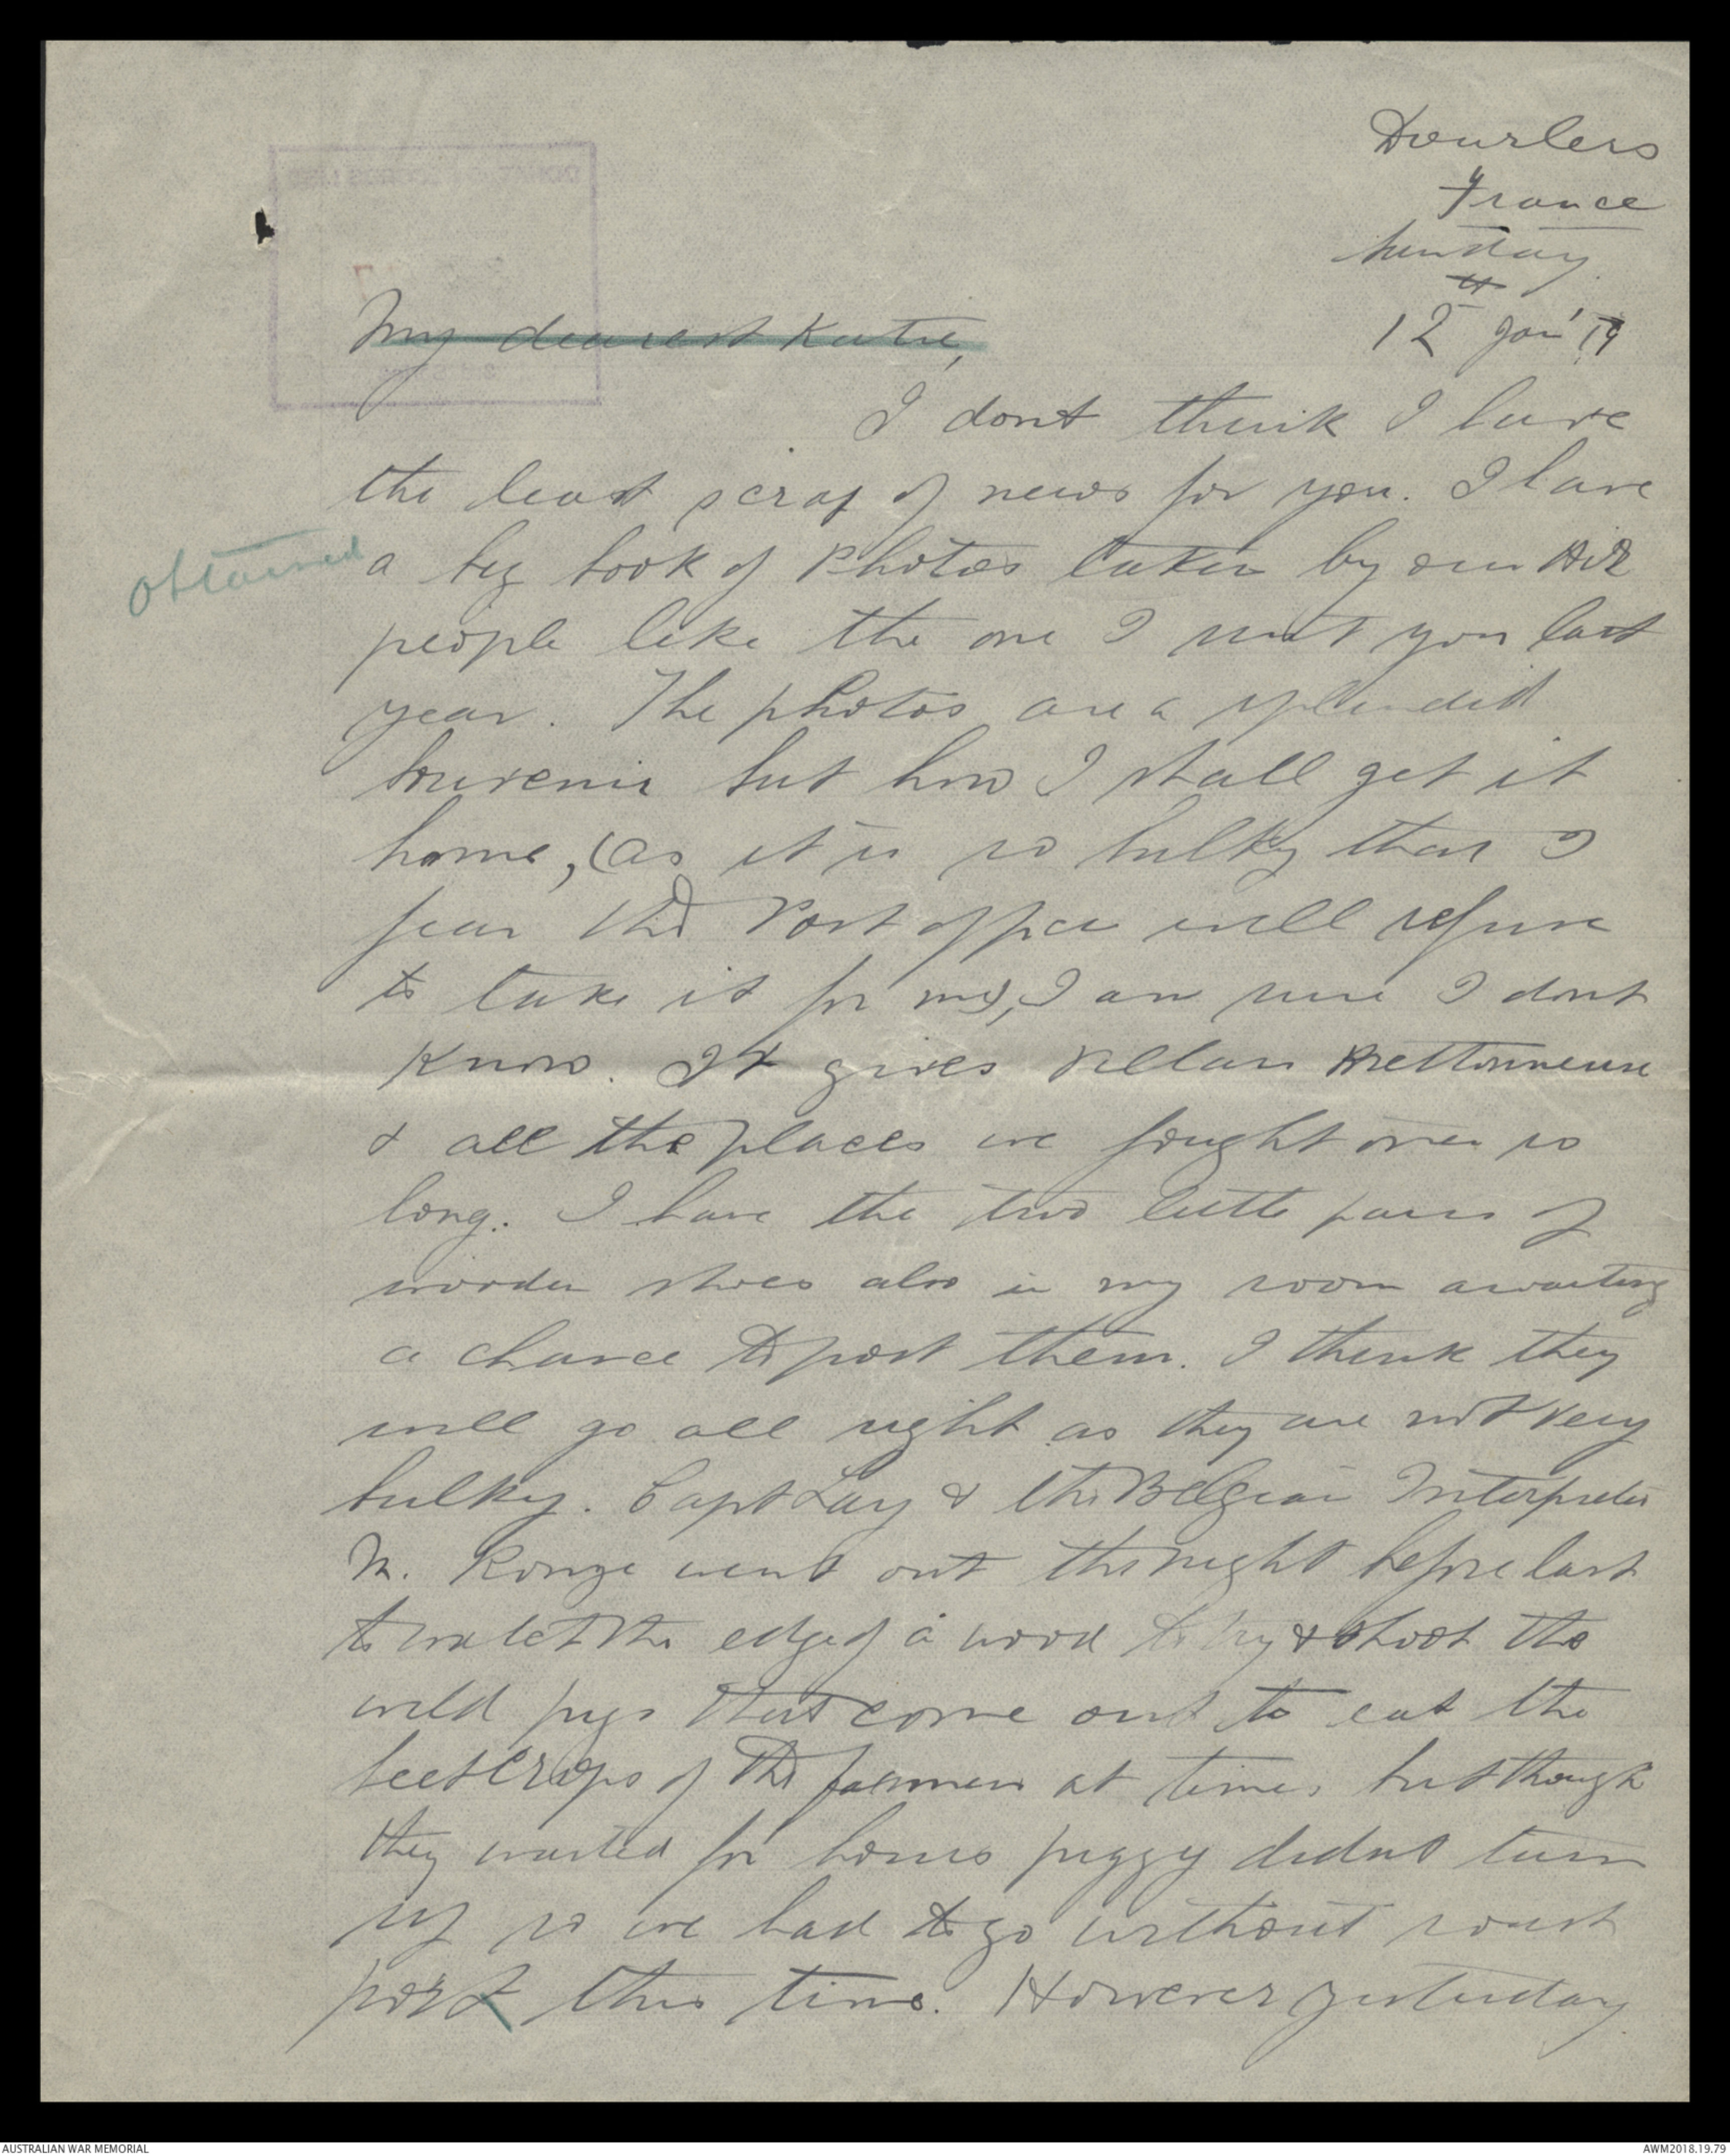 Dourlers
France
Sunday
12 Jan' 19
My dearest Katie,
I dont think I have
the least scrap of news for you. I have
obtained
a big book of Photos taken by our Air
people like the one I sent you last
year. The photos are a splendid
souvenir but how I shall get it
home, (as it is so bulky that I
fear the Post office will refuse
to take it for me), I am sure I dont
know. It gives Villers Brettonneux
& all the places we fought over so
long. I have the two little pairs of
wooden shoes also in my room awaiting
a chance to post them. I think they
will go all right as they are not very
bulky. Capt Lay & the Belgian Interpreter
M. Ronze went out the night before last
to watch the edge of a wood to try & shoot the
wild pigs that come out to eat the
beet crops of the farmers at times but though
they waited for hours piggy didnt turn
up so we had to go without roast
pork this time. However yesterday
AUSTRALIAN WAR MEMORIAL
AWM2018.19.79